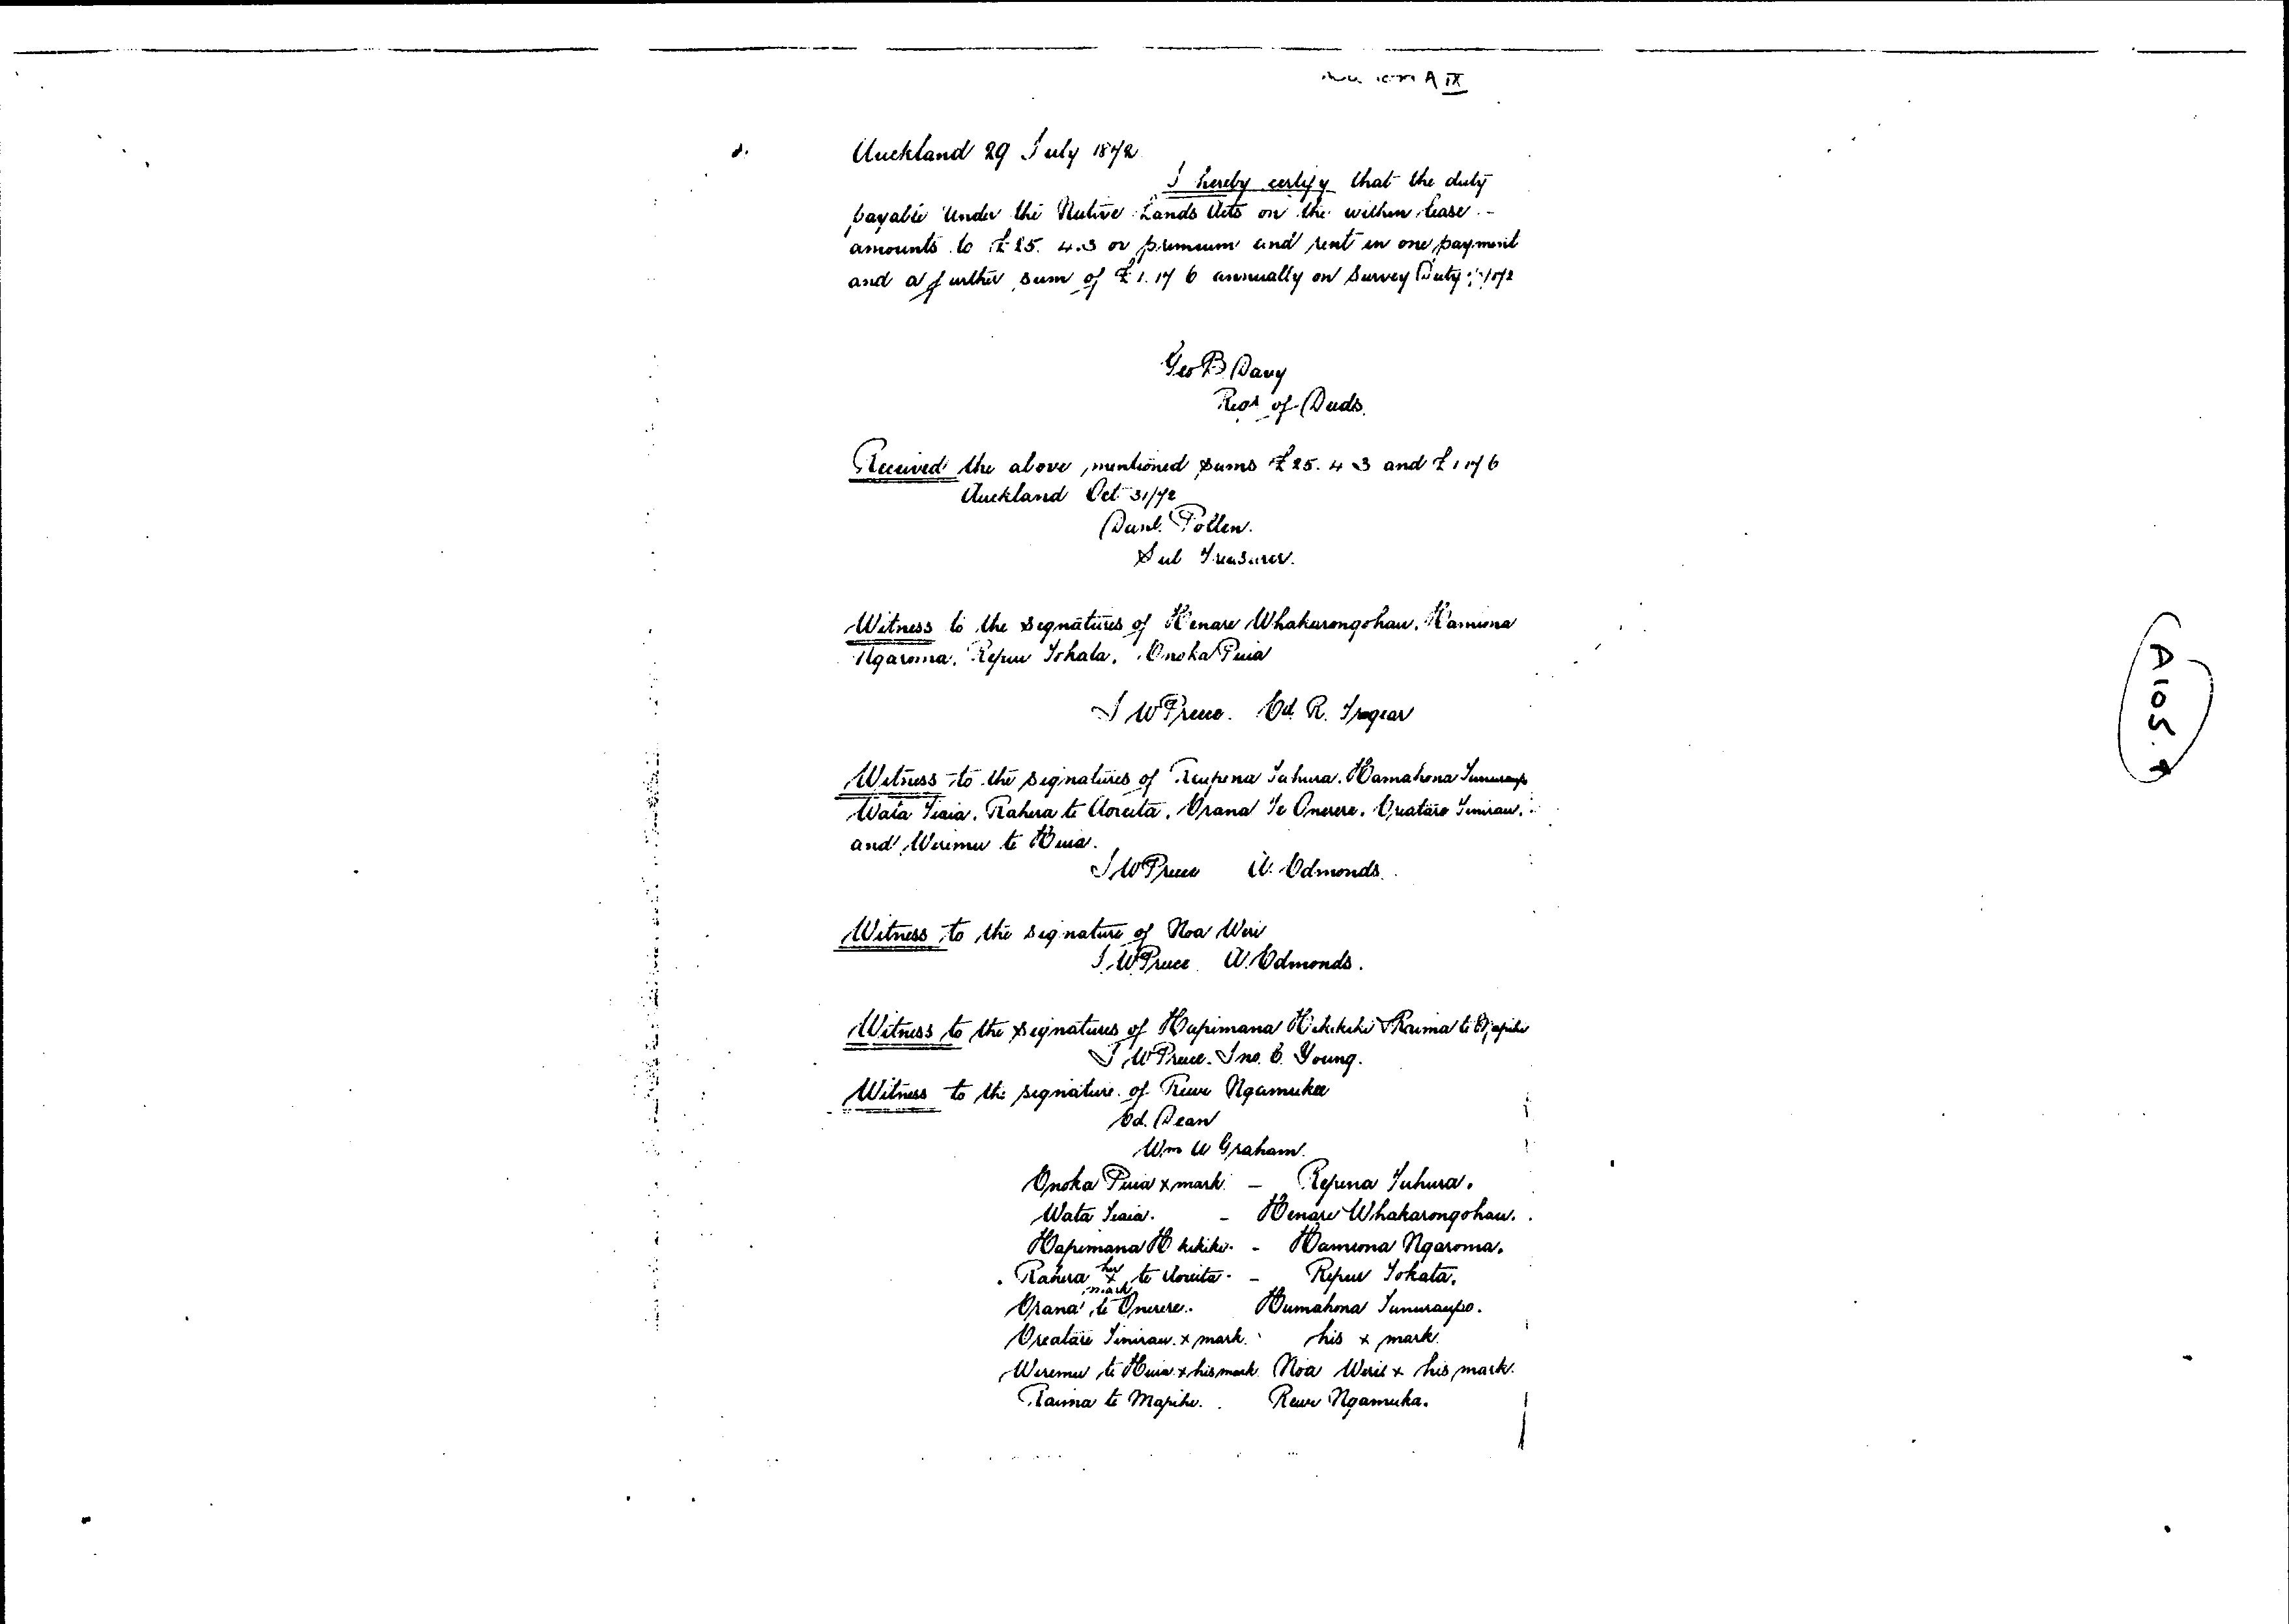 A IX
Auckland 29 July 1872
I hereby certify that the duty
payable under the Native Lands Acts on the within lease
amounts to £25. 4.3 on premium and rent in one payment
and a further sum of £1. 17 6 annually on Survey Duty
Geo B. Davy
Regr of Deeds.
Received the above mentioned sums £25. 4 3 and £1 17 6
Auckland Oct 31/72
Danl. Pollen.
Sub Treasurer.
Witness to the signatures of Henare Whakarongohau, Hamiona
Ngaroma, Repeu Tokata, Onoka Puia
J W Preece. Ed. R. Tregear
Witness to the signatures of Reupena Tuhura, Hamahona Tunuraupo
Wata Tiaia, Rahera te Aoreita, Orana Te Onerere, Oreatare Tiniraw,
and Weremu te Huia.
J W Preece W. Edmonds.
Witness to the signature of Noa Weri
J. W Preece W. Edmonds.
Witness to the signatures of Hapimana Hikikihi & Raima te
J W Preece. Jno. C. Young.
Witness to the signature of Rewi Ngamuka
Ed. Dean
Wm W Graham.
Onoka Puia x mark. – Repena Tuhura.
Wata Tiaia. – Henare Whakarongohau.
Hapimana H kikiki. – Hamiona Ngaroma.
Rahera her x mark te Aoreita. – Repeu Tokata.
Orana te Onerere. Humahona Tunuraupo.
Oreatare Tiniraw. x mark. his x mark.
Weremu te Huia x his mark. Noa Weril x his mark.
Raima te Mapihi. Rewi Ngamuka.
A105.